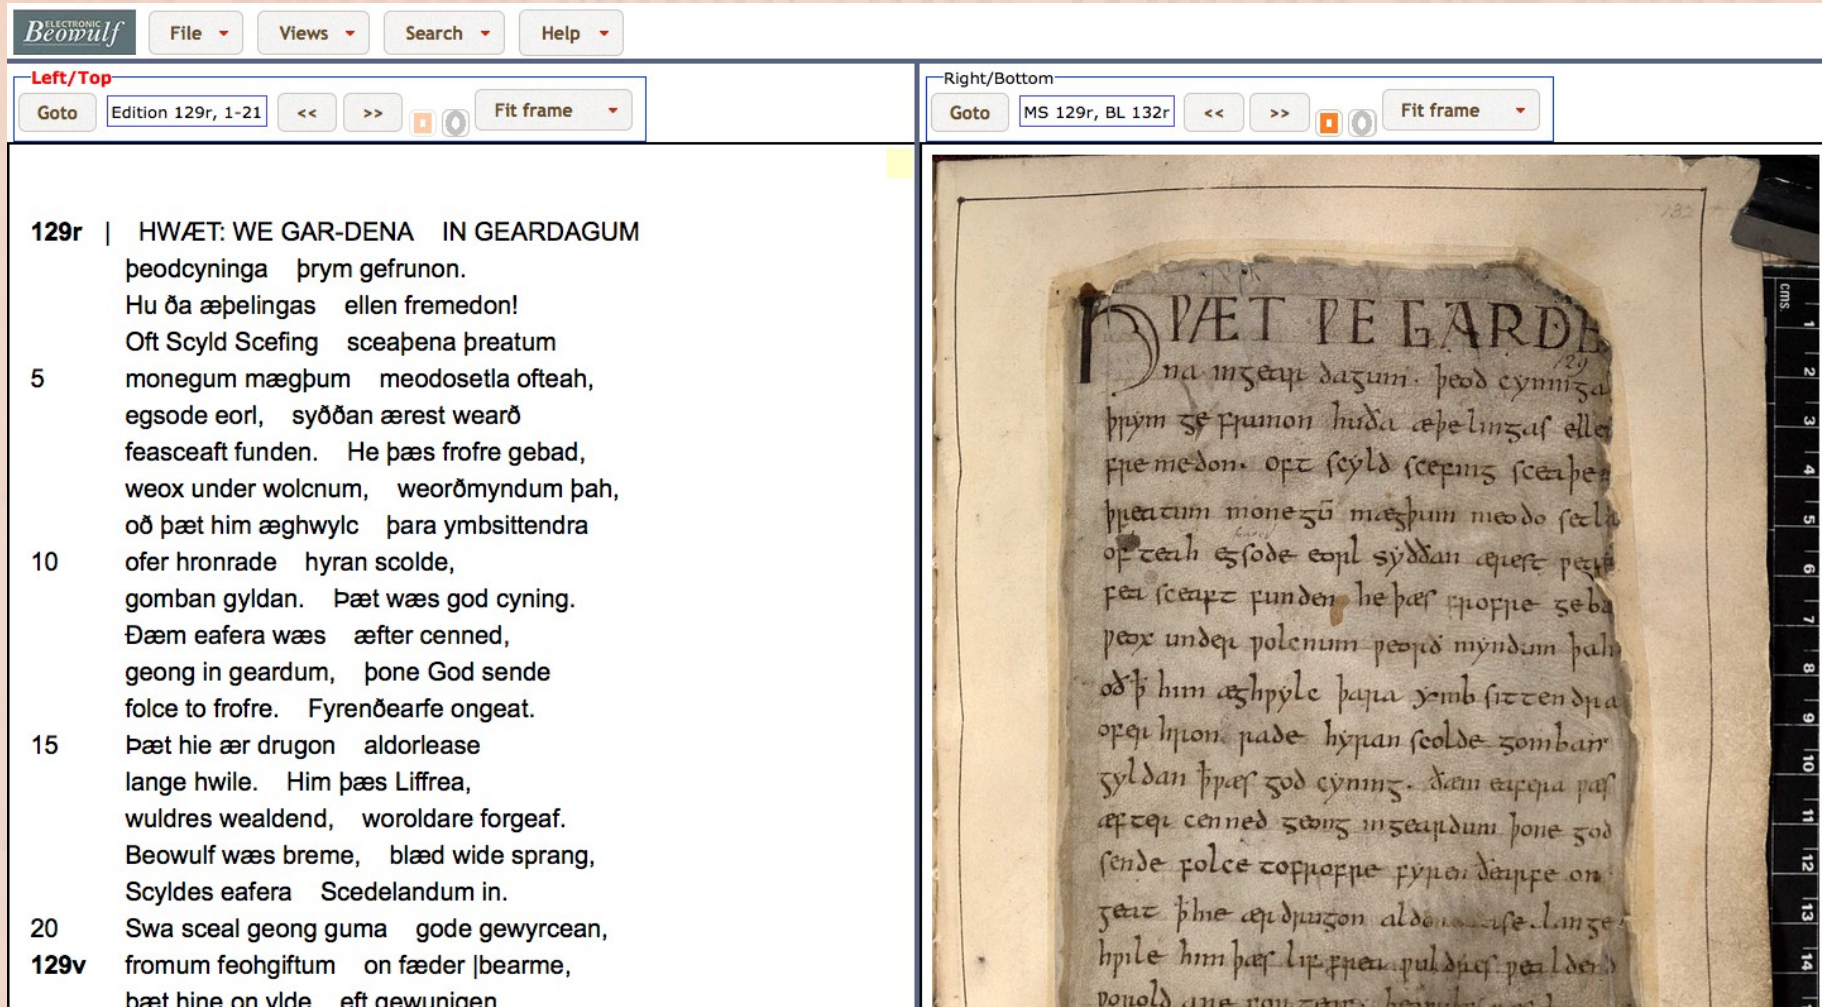 ELECTRONIC
Beowulf
File Views Search Help
Left/Top
Goto Edition 129r, 1-21 << >> Fit frame
129r | HWÆT: WE GAR-DENA IN GEARDAGUM
þeodcyninga þrym gefrunon.
Hu ða æþelingas ellen fremedon!
Oft Scyld Scefing sceaþena þreatum
5 monegum mægþum meodosetla ofteah,
egsode eorl, syððan ærest wearð
feasceaft funden. He þæs frofre gebad,
weox under wolcnum, weorðmyndum þah,
oð þæt him æghwylc þara ymbsittendra
10 ofer hronrade hyran scolde,
gomban gyldan. Þæt wæs god cyning.
Ðæm eafera wæs æfter cenned,
geong in geardum, þone God sende
folce to frofre. Fyrenðearfe ongeat.
15 Þæt hie ær drugon aldorlease
lange hwile. Him þæs Liffrea,
wuldres wealdend, woroldare forgeaf.
Beowulf wæs breme, blæd wide sprang,
Scyldes eafera Scedelandum in.
20 Swa sceal geong guma gode gewyrcean,
129v fromum feohgiftum on fæder |bearme,
þæt hine on ylde eft gewunigen
Right/Bottom
Goto MS 129r, BL 132r << >> Fit frame
132
HǷÆT ǷE GARDE
129
na ingear dagum. þeod cyninga
þrym ge frunon huða æþelingas elle
fremedon. oft scyld scefing sceaþe
þreatum monegū mægþum meodo setla
of teah egsode eorl syððan ærest ƿear
fea sceaft funden he þæs frofre geba
ƿeox under ƿolcnum ƿeorð myndum þah
oð ꝥ him æghƿylc þara ymb sittendra
ofer hron rade hyran scolde gomban
gyldan ꝥ ƿæs god cyning. ðæm eafera ƿæs
æfter cenned geong ingeardum þone god
sende folce tofrofre fyren ðearfe on
geat ꝥ hie ær drugon lange
hƿile him þæs lif frea ƿuldres ƿealdend
cms.
1
2
3
4
5
6
7
8
9
10
11
12
13
14